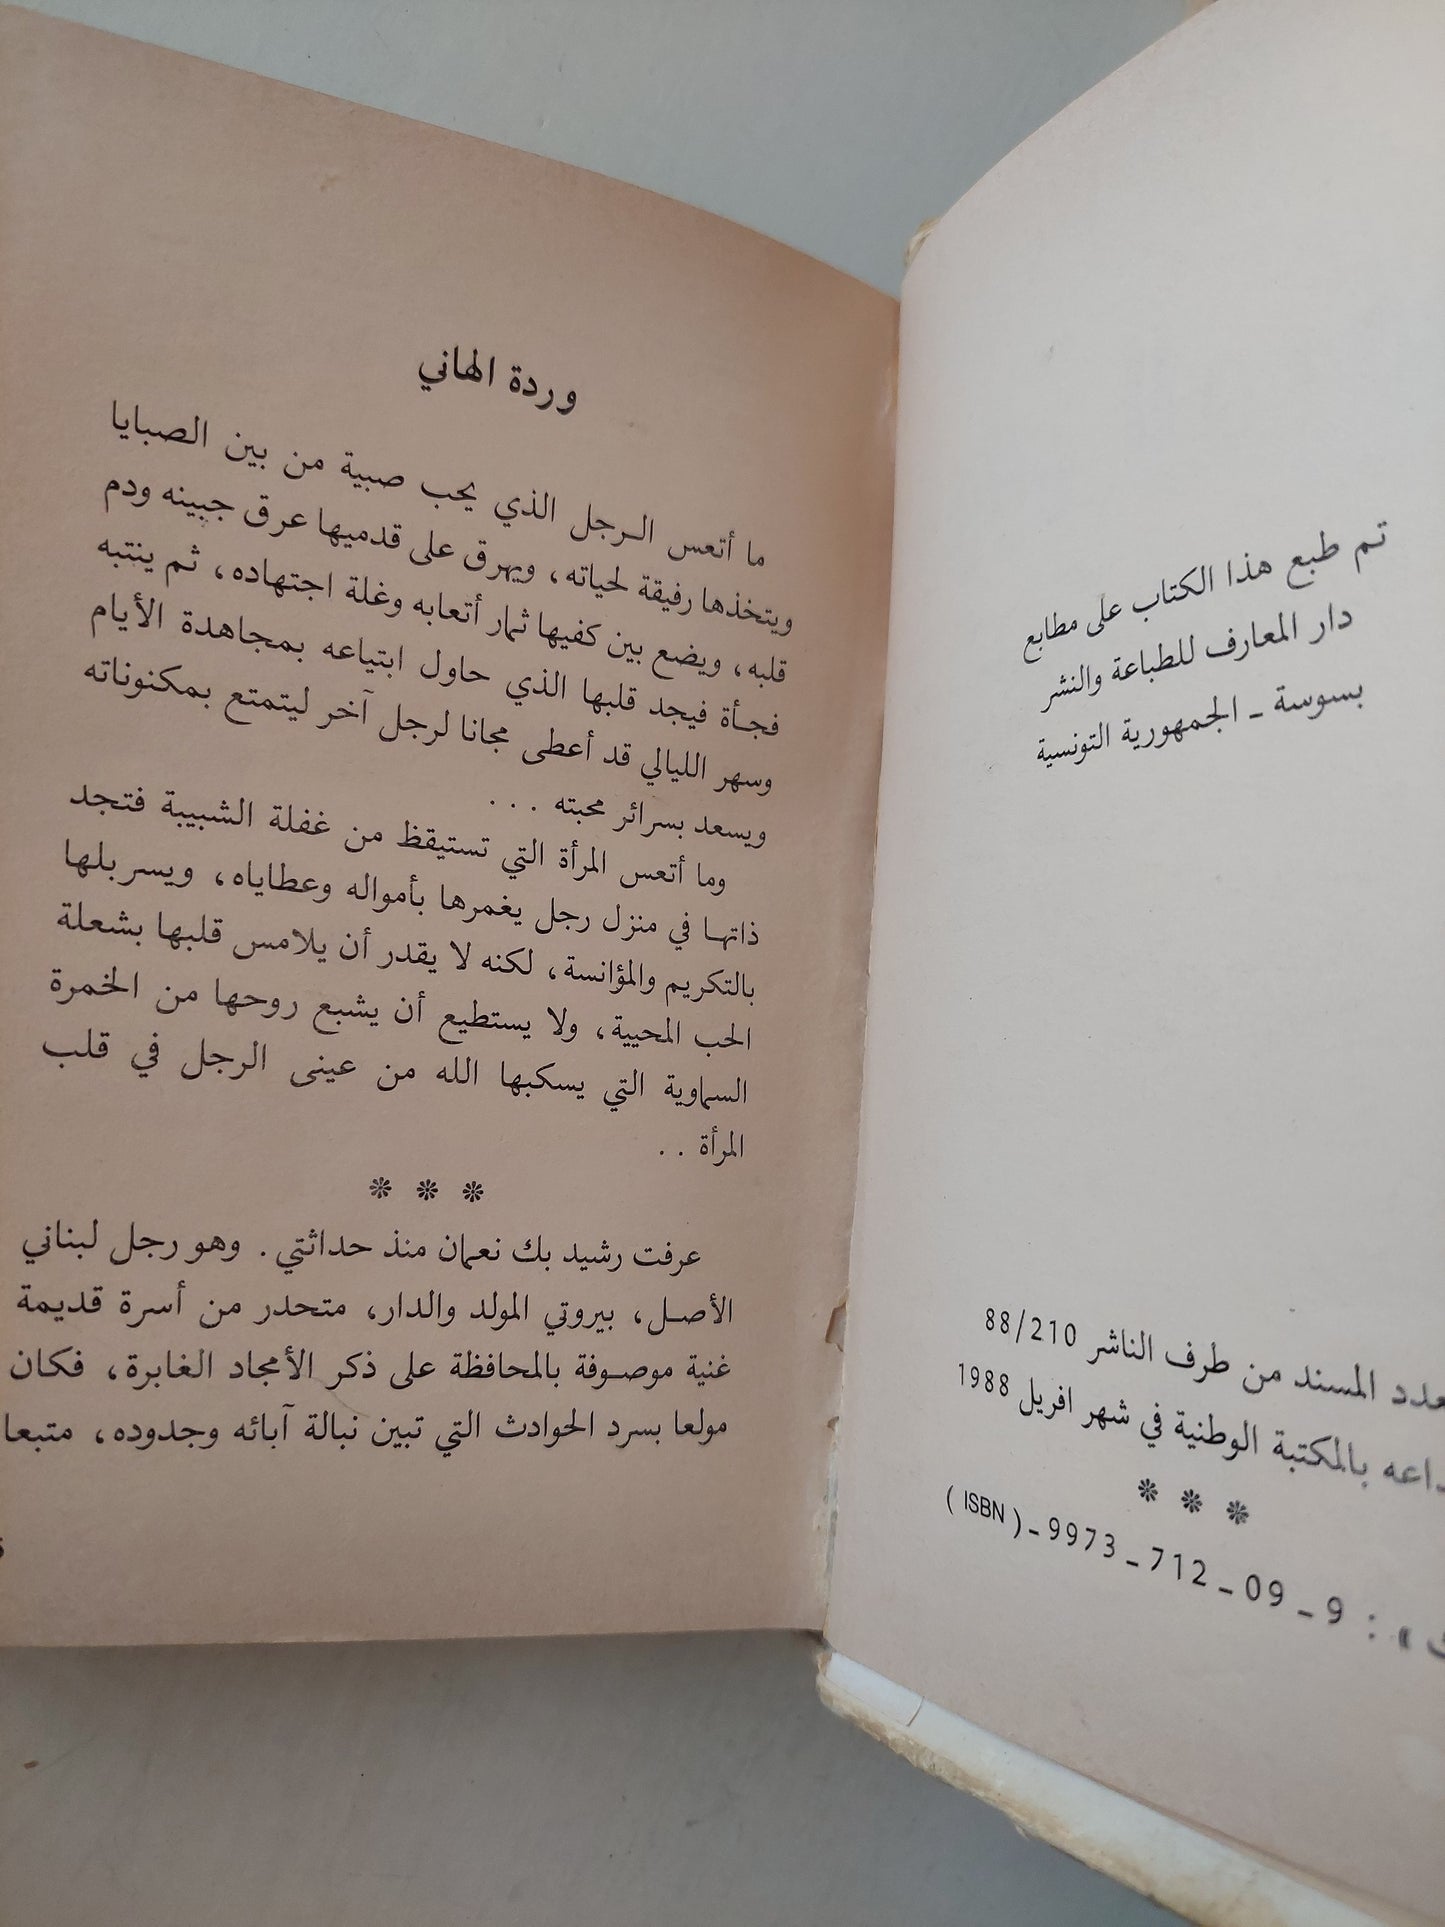 تم طبع هذا الكتاب على مطابع
دار المعارف للطباعة والنشر
بسوسة ـ الجمهورية التونسية
المسند من طرف الناشر 88/210
بالمكتبة الوطنية في شهر افريل 1988
❊ ❊ ❊
( ISBN ) ـ 9973 ـ 712 ـ 09 ـ 9 :
وردة الهاني
ما أتعس الرجل الذي يحب صبية من بين الصبايا
ويتخذها رفيقة لحياته، ويهرق على قدميها عرق جبينه ودم
قلبه، ويضع بين كفيها ثمار أتعابه وغلة اجتهاده، ثم ينتبه
فجأة فيجد قلبها الذي حاول ابتياعه بمجاهدة الأيام
وسهر الليالي قد أعطى مجانا لرجل آخر ليتمتع بمكنوناته
ويسعد بسرائر محبته . . .
وما أتعس المرأة التي تستيقظ من غفلة الشبيبة فتجد
ذاتها في منزل رجل يغمرها بأمواله وعطاياه، ويسربلها
بالتكريم والمؤانسة، لكنه لا يقدر أن يلامس قلبها بشعلة
الحب المحيية، ولا يستطيع أن يشبع روحها من الخمرة
السماوية التي يسكبها الله من عينى الرجل في قلب
المرأة . .
❊ ❊ ❊
عرفت رشيد بك نعمان منذ حداثتي. وهو رجل لبناني
الأصل، بيروتي المولد والدار، متحدر من أسرة قديمة
غنية موصوفة بالمحافظة على ذكر الأمجاد الغابرة، فكان
مولعا بسرد الحوادث التي تبين نبالة آبائه وجدوده، متبعا